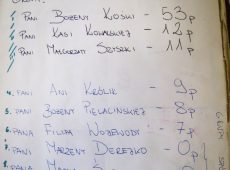 PANI BOŻENY KIOSKI – 53p
PANI KASI KOWALSKIEJ – 12p
PANI MAŁGORZATY SZYSZKI – 11p
4. PANI ANI KRÓLIK – 9p
5. PANI BOŻENY PIELACINSKIEJ – 8p
6. PANA FILIPA WOJEWODY – 7p
7. PANI MARZENY DEREZKO – 0p
8. PANA